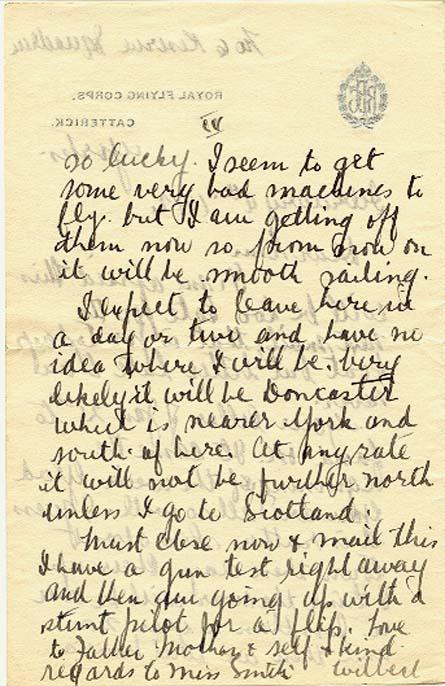 No 6 Reserve Squadron
ROYAL FLYING CORPS.
CATTERICK.
IV
so lucky. I seem to get
some very bad machines to
fly. but I am getting off
them now so from now on
it will be smooth sailing.
I expect to leave here in
a day or two and have no
idea where I will be. very
likely it will be Doncaster
which is nearer York and
south of here. At any rate
it will not be further north
unless I go to Scotland.
Must close now & mail this
I have a gun test right away
and then am going up with a
stunt pilot for a flip. Love
to Father Mother & self & kind
regards to Miss Smith Wilbert